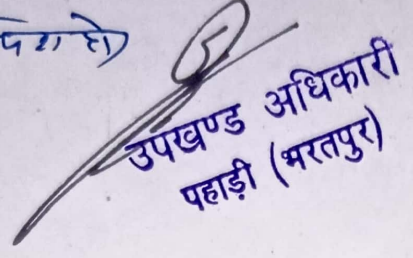 पेश हो
उपखण्ड अधिकारी
पहाड़ी (भरतपुर)